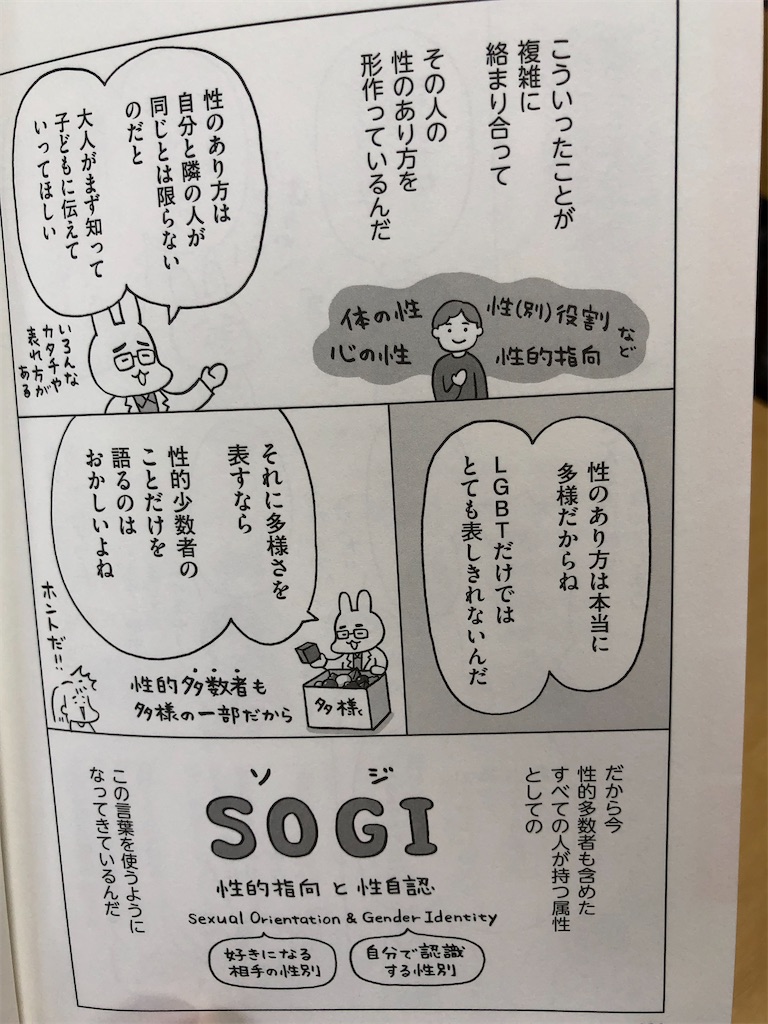 こういったことが
複雑に
絡まり合って
その人の
性のあり方を
形作っているんだ
体の性
性(別)役割
心の性
性的指向
など
性のあり方は
自分と隣の人が
同じとは限らない
のだと
大人がまず知って
子どもに伝えて
いってほしい
いろんな
カタチや
表れ方が
ある
性のあり方は本当に
多様だからね
LGBTだけでは
とても表しきれないんだ
それに多様さを
表すなら
性的少数者の
ことだけを
語るのは
おかしいよね
多様
性的多数者も
多様の一部だから
ホントだ!!
だから今
性的多数者も含めた
すべての人が持つ属性
としての
ソジ
SOGI
性的指向と性自認
Sexual Orientation & Gender Identity
好きになる
相手の性別
自分で認識
する性別
この言葉を使うように
なってきているんだ